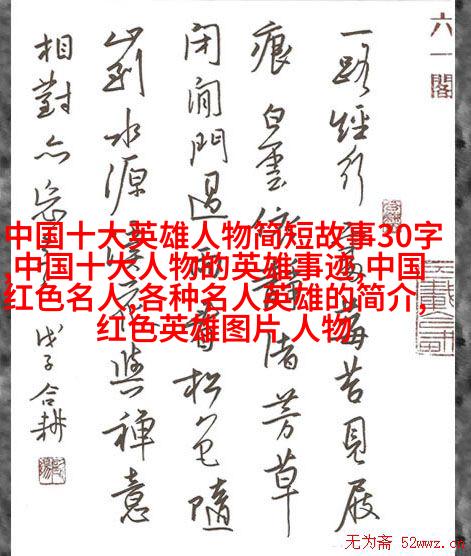 六一閣
一路經行處莓苔見屐
痕白雲依靜渚芳草
閉閒門過雨看松色隨
山到水源溪花與禪意
相對亦忘言
戊子合耕
中国十大英雄人物简短故事30字
,中国十大人物的英雄事迹,中国
红色名人,各种名人英雄的简介,
红色英雄图片,人物
无为斋 52wwz.cn